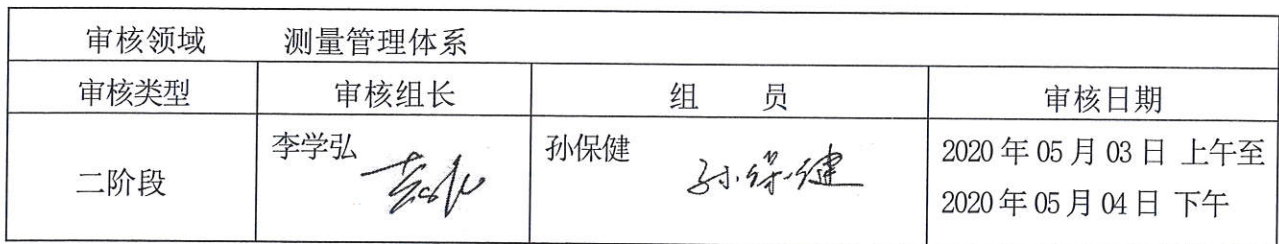 审核领域 测量管理体系
审核类型 审核组长 组 员 审核日期
二阶段 李学弘 孙保健 孙保健 2020 年 05 月 03 日 上午至
2020 年 05 月 04 日 下午